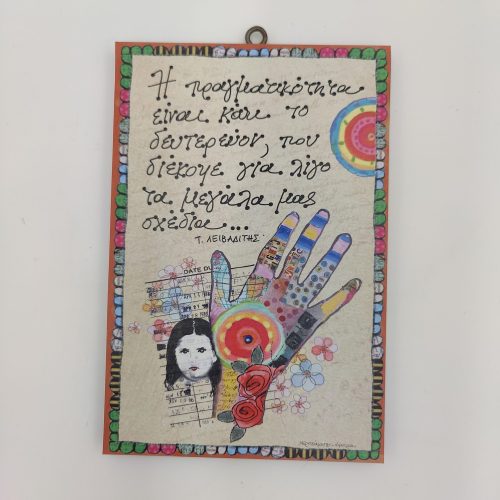 Η πραγματικότητα
είναι κάτι το
δευτερεύον, που
διέκοψε για λίγο
τα μεγάλα μας
σχέδια...
Τ. ΛΕΙΒΑΔΙΤΗΣ
DATE DU